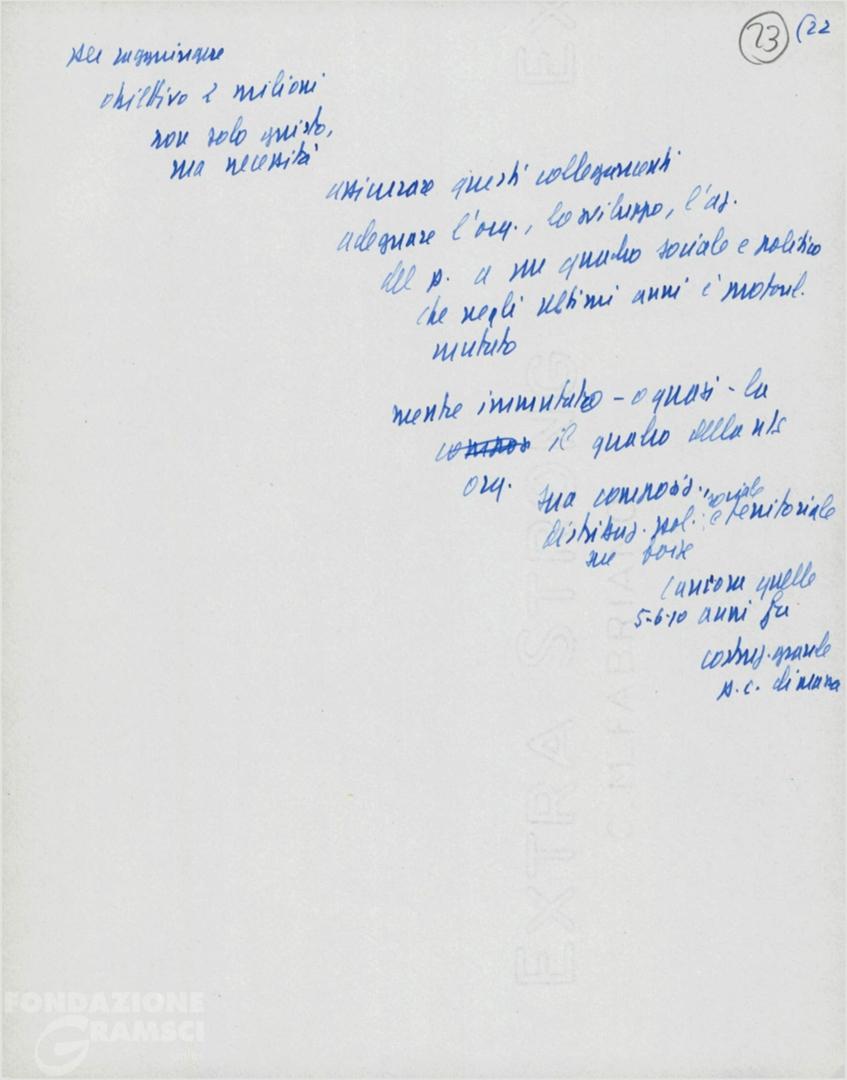 23 (22
per raggiungere
obiettivo 2 milioni
non solo giusto,
ma necessità
assicurare questi collegamenti
adeguare l'org., lo sviluppo, l'az.
del p. a un quadro sociale e politico
che negli ultimi anni è
mutato
mentre immutato - o quasi - la
il quadro della ns
org.
sua composiz. sociale
distribuz. pol. e territoriale
sue
(ancora quelle
5-6-10 anni fa
costruz. grande
p.c. di massa
EXTRA STRONG
C.M. FABRIANO
EX
FONDAZIONE
GRAMSCI